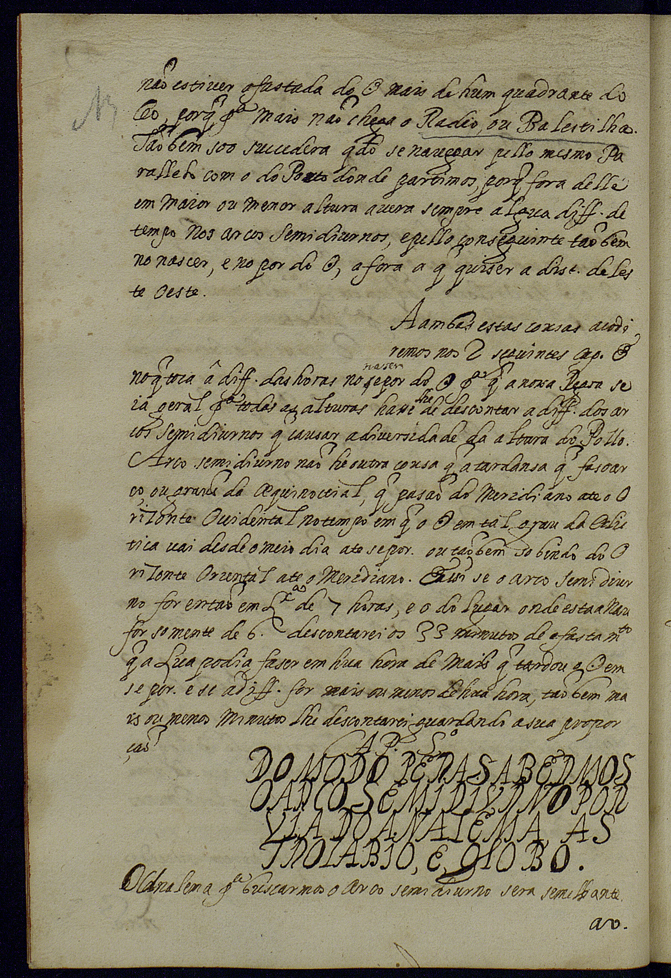 não estiver afastada do ☉ mais de hum quadrante do
Ceo, porq̃ pª mais não chega o Radio, ou Balestilha.
Tãobem isso succedera qdo se navegar pello mesmo Pa
rallelo com o do Porto donde partimos, porq̃ fora delle
em maior ou menor altura avera sempre algũa diff. de
tempo nos arcos semidiurnos, e pello conseguinte tãobem
no nascer, e no por do ☉, afora a q̃ quiser a dist. de les
te oeste.
A ambas estas cousas acodi
remos nos 2 seguintes cap. E
no q̃ toca â diff. das horas no nascer e por do ☉ pª q̃ a nossa Regra se
ia geral pª todas as alturas hase lhe de descontar a diff. dos ar
cos semidiurnos q̃ causar a diversidade da altura do Pollo.
Arco semidiurno não he outra cousa q̃ a tardansa q̃ fas o ar
co, ou graos da Æquinoctial, q̃ pasão do Meridiano ate o O
rizonte Ocidental no tempo em q̃ o ☉ em tal grau da Eclip
tica vai desdeo meio dia ate se por. ou tãobem sobindo do O
rizonte Oriental ate o Meridiano. se o arco semidiur
no for então em Lxª de 7 horas, e o do lugar onde esta a Nau
for somente de 6. descontarei os 33 minutos de afastamto
q̃ a Lua podia faser em hũa hora de mais q̃ tardou o ☉ em
se por. e se a diff. for mais ou menos de hũa hora, tãobem ma
is ou menos Minutos lhe descontarei guardando a sua propor
ção
CAP. 2º
DO MODO PERA SABERMOS
O ARCO SEMIDIVRNO POR
VIA DO ANALEMA, AS
TROLABIO, E, GLOBO.
O Analema pª buscarmos o Arco semidiurno sera semelhante
ao.